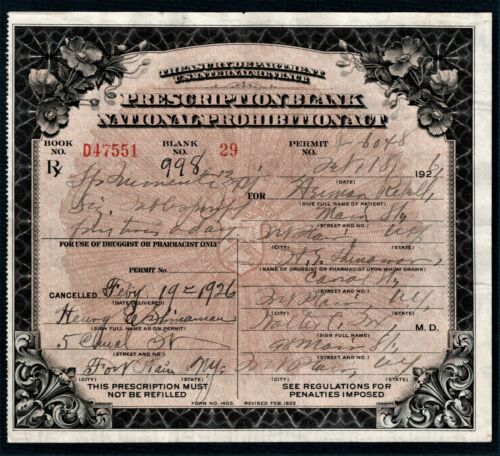 TREASURY DEPARTMENT
U.S. INTERNAL REVENUE
PRESCRIPTION BLANK
NATIONAL PROHIBITION ACT
BOOK NO. D47551 BLANK NO. 29 PERMIT NO.
998 6048
Rx Feb 18 1926
(DATE)
Sp Frumenti
FOR Herman
(GIVE FULL NAME OF PATIENT)
Main St
(STREET AND NO.)
a day
FOR USE OF DRUGGIST OR PHARMACIST ONLY
(CITY) (STATE)
PERMIT NO. (NAME OF DRUGGIST OR PHARMACIST UPON WHOM DRAWN)
Canal St
(STREET AND NO.)
CANCELLED Feby 19 - 1926
(DATE DELIVERED)
(CITY) (STATE)
Henry
M. D.
(SIGN FULL NAME AS ON PERMIT) (SIGN FULL NAME)
5 Canal St Main St
(STREET AND NO.) (STREET AND NO.)
Fort Plain NY
(CITY) (STATE) (CITY) (STATE)
THIS PRESCRIPTION MUST NOT BE REFILLED
SEE REGULATIONS FOR PENALTIES IMPOSED
FORM NO. 1403 REVISED FEB. 1922